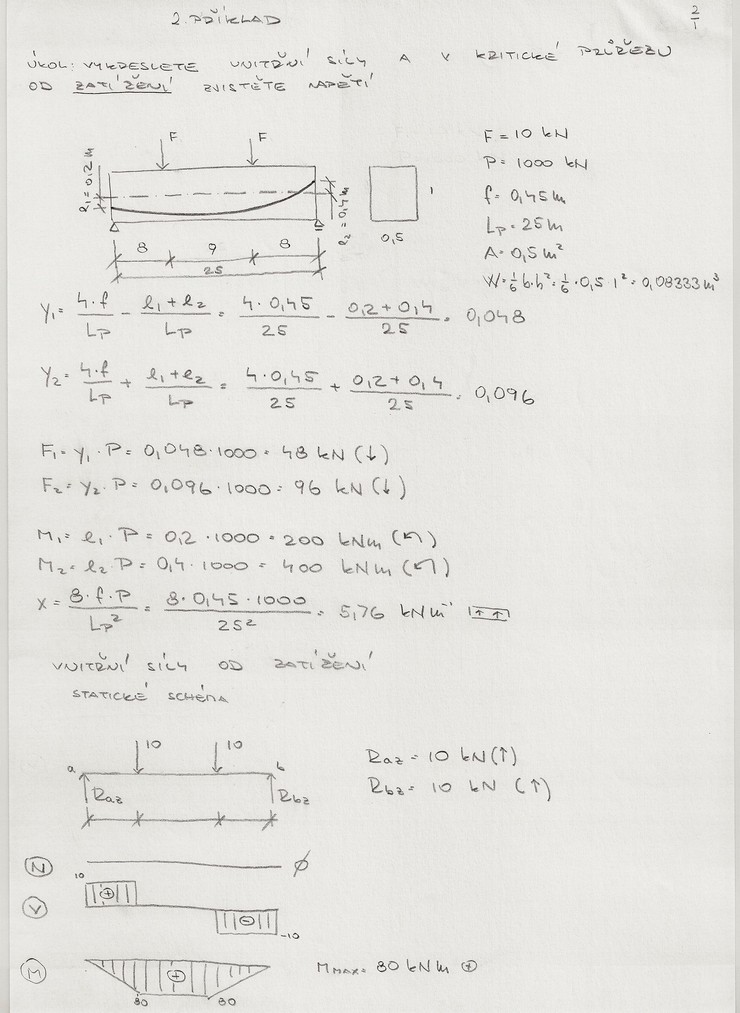 2. PŘÍKLAD
2/1
ÚKOL: VYKRESLETE VNITŘNÍ SÍLY A V KRITICKÉ PRŮŘEZU
OD ZATÍŽENÍ ZJISTĚTE NAPĚTÍ
F F
e₁ = 0,2 m
e₂ = 0,4 m
8 9 8
25
1
0,5
F = 10 kN
P = 1000 kN
f = 0,45 m
Lp = 25 m
A = 0,5 m²
W = 1/6 b·h² = 1/6 · 0,5 · 1² = 0,08333 m³
Y₁ = 4·f/Lp - (e₁+e₂)/Lp = 4·0,45/25 - (0,2+0,4)/25 = 0,048
Y₂ = 4·f/Lp + (e₁+e₂)/Lp = 4·0,45/25 + (0,2+0,4)/25 = 0,096
F₁ = Y₁ · P = 0,048·1000 = 48 kN (↓)
F₂ = Y₂ · P = 0,096·1000 = 96 kN (↓)
M₁ = e₁ · P = 0,2 · 1000 = 200 kNm (↶)
M₂ = e₂ · P = 0,4 · 1000 = 400 kNm (↶)
X = 8·f·P/Lp² = 8·0,45·1000/25² = 5,76 kNm⁻¹ ↑↑
VNITŘNÍ SÍLY OD ZATÍŽENÍ
STATICKÉ SCHÉMA
10 10
a b
Raz Rbz
Raz = 10 kN (↑)
Rbz = 10 kN (↑)
N ∅
10
V + -
-10
M + Mmax = 80 kNm ⊕
80 80